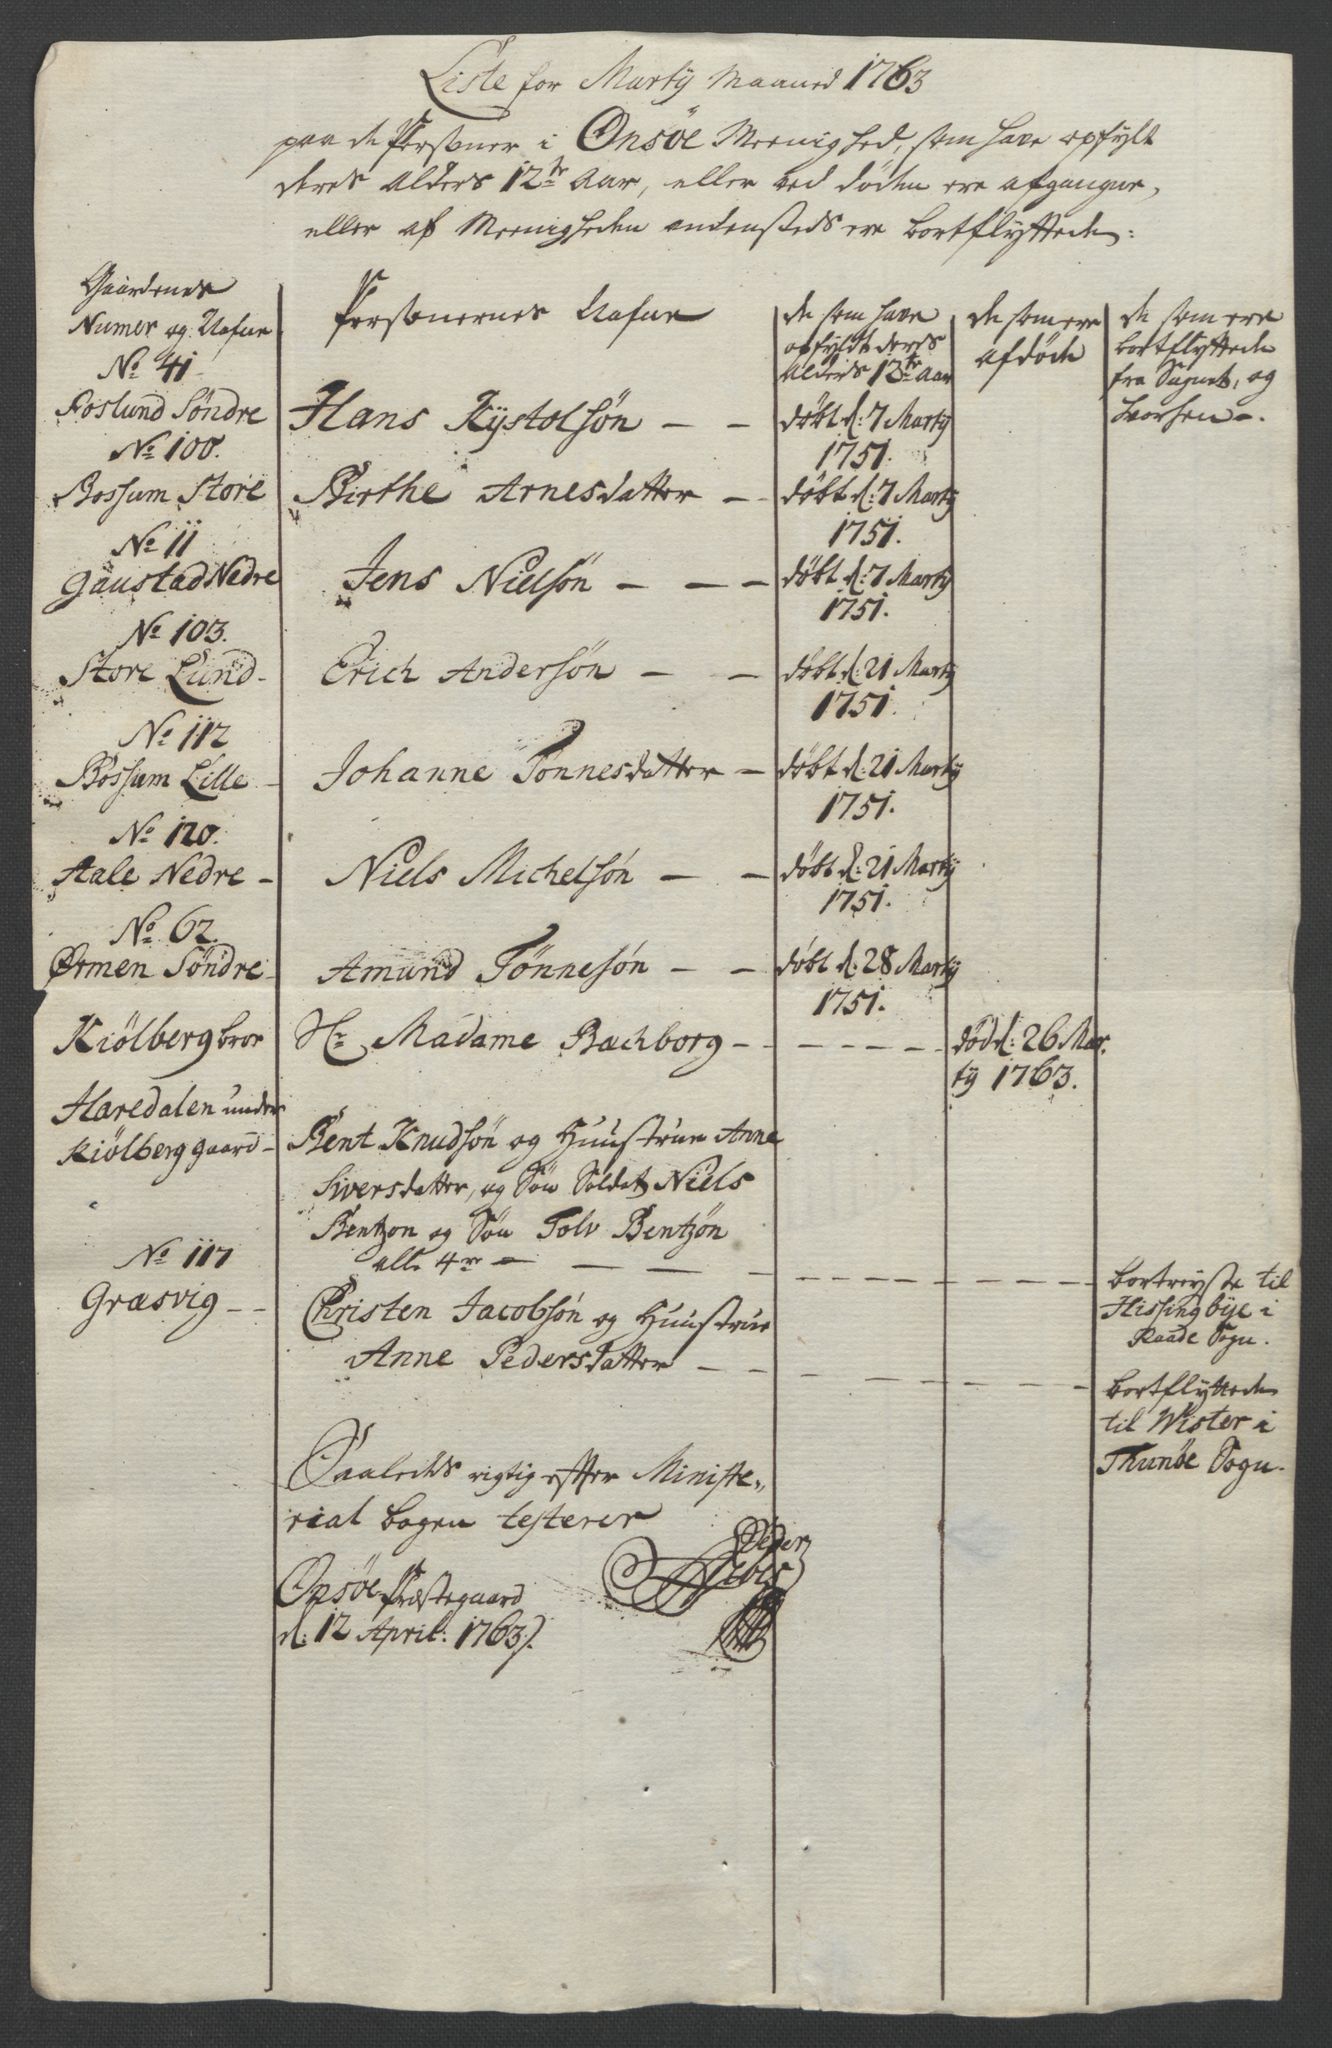 Liste for Marty Maaned 1763
paa de Personer i Onsöe Meenighed, som have opfylt
deres Alders 12te Aar, eller ved döden ere afgangne,
eller af Meenigheden andensteds ere bortflyttede:
Gaardenes
Numer og Nafne
Personernes Nafne
de som have
opfyldt deres
Alders 12te Aar
de som ere
afdöde
de som ere
bortflyttede
fra Sognet, og
hvorhen -.
No 41
Roslund Söndre
Hans Kystolsön - -
döbt d: 7 Marty
1751.
No 100.
Bossum Store
Birthe Arnesdatter -
döbt d: 7 Marty
1751.
No 11
Gaustad Nedre
Jens Nielsön - - -
döbt d: 7 Marty
1751.
No 103.
Store Lund -
Erich Andersön - -
döbt d: 21 Marty
1751.
No 112
Bossum Lille -
Johanne Tönnesdatter -
döbt d: 21 Marty
1751.
No 120.
Aale Nedre -
Niels Michelsön - -
döbt d: 21 Marty
1751.
No 62.
Ørmen Söndre -
Amund Tönnesön - -
döbt d: 28 Marty
1751.
Kiölberg broe
Hr Madame Bachborg - - - - -
död d: 26 Mar,
ty 1763.
Haredalen under
Kiölberg gaard -
Bent Knudsön og Huustrue Anne
Siversdatter, og Sön Soldat Niels
Bentzon og Sön Tolv Bentzön
alle 4re - - - - - - - -
bortreyste til
Hissingbye i
Raade Sogn.
No 117
Græsvig - -
Christen Jacobsön og Huustrue
Anne Pedersdatter - - - - - -
bortflyttede
til Wister i
Thunöe Sogn.
Saaledes rigtig efter Ministe,,
rial bogen testerer
Onsöe Præstegaard
d: 12 April: 1763.
Peder